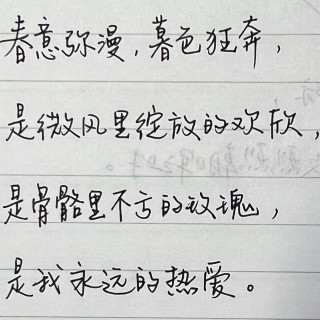 春意弥漫,暮色狂奔,
是微风里绽放的欢欣,
是骨骼里不亏的玫瑰,
是我永远的热爱。